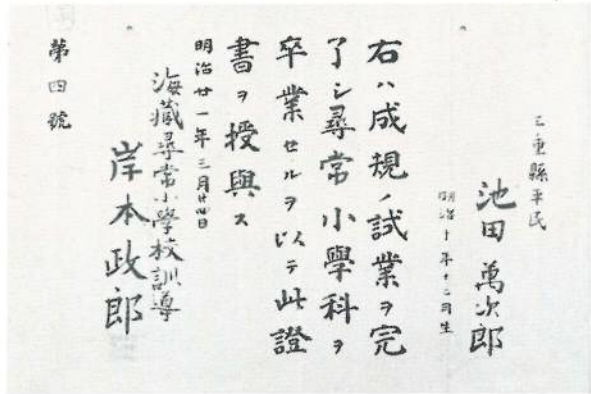 三重縣平民
池田萬次郎
明治十年十二月生
右ハ成規ノ試業ヲ完
了シ尋常小學科ヲ
卒業セルヲ以テ此證
書ヲ授與ス
明治廿一年三月廿四日
海藏尋常小學校訓導
岸本政郎
第四號